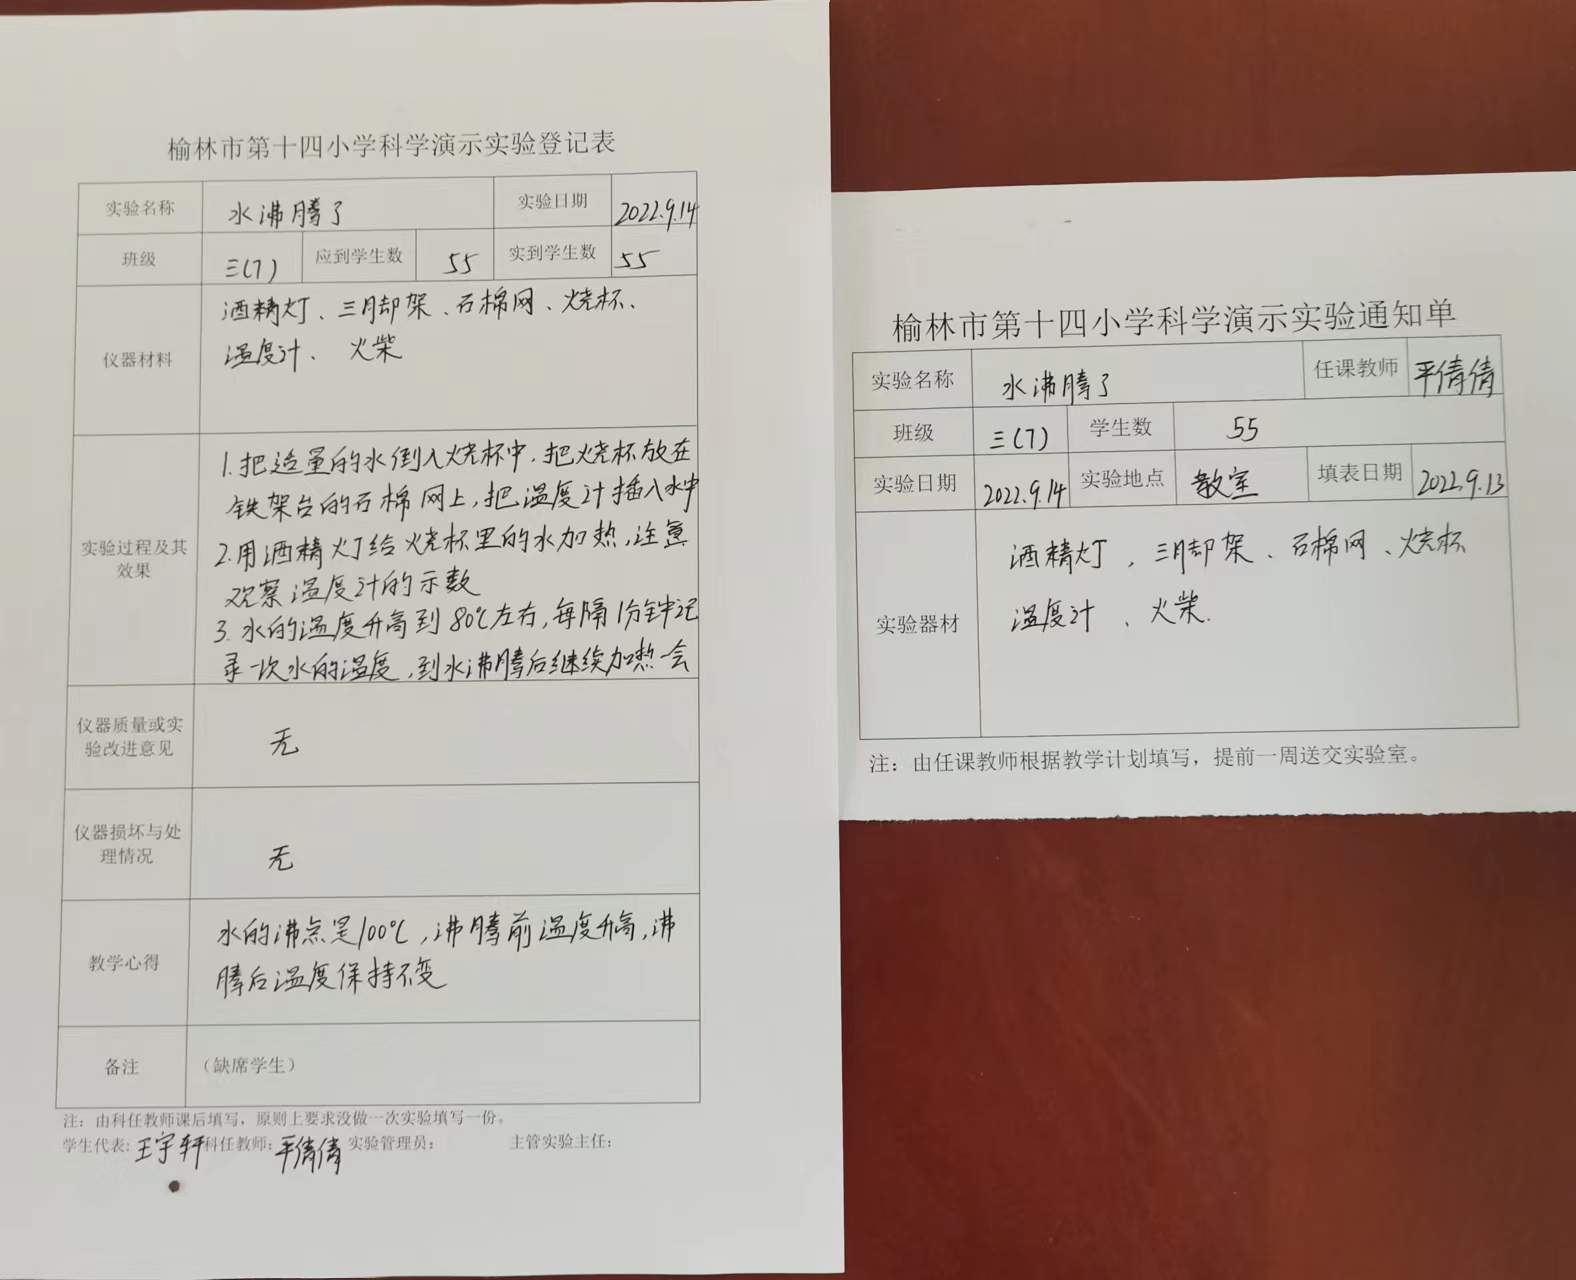 榆林市第十四小学科学演示实验登记表
实验名称 水沸腾了 实验日期 2022.9.14
班级 三(7) 应到学生数 55 实到学生数 55
仪器材料
酒精灯、三脚架、石棉网、烧杯、
温度计、火柴
实验过程及其
效果
1.把适量的水倒入烧杯中,把烧杯放在
铁架台的石棉网上,把温度计插入水中
2.用酒精灯给烧杯里的水加热,注意
观察温度计的示数
3.水的温度升高到80℃左右,每隔1分钟记
录一次水的温度,到水沸腾后继续加热一会
仪器质量或实
验改进意见
无
仪器损坏与处
理情况
无
教学心得
水的沸点是100℃,沸腾前温度升高,沸
腾后温度保持不变
备注 (缺席学生)
注:由科任教师课后填写,原则上要求没做一次实验填写一份。
学生代表:王宇轩 科任教师:平倩倩 实验管理员: 主管实验主任:
榆林市第十四小学科学演示实验通知单
实验名称 水沸腾了 任课教师 平倩倩
班级 三(7) 学生数 55
实验日期 2022.9.14 实验地点 教室 填表日期 2022.9.13
实验器材
酒精灯、三脚架、石棉网、烧杯
温度计、火柴.
注:由任课教师根据教学计划填写,提前一周送交实验室。